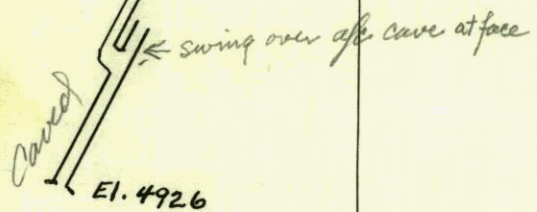 swing over afc cave at face
Caved
El. 4926